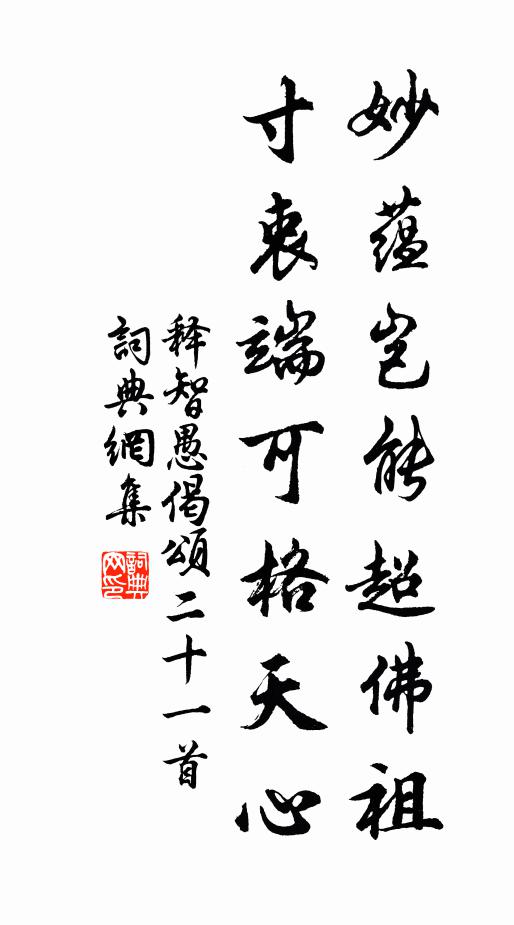 妙蘊豈能超佛祖
寸衷端可格天心
释智愚偈頌二十一首
詞典網集
詞典
网印